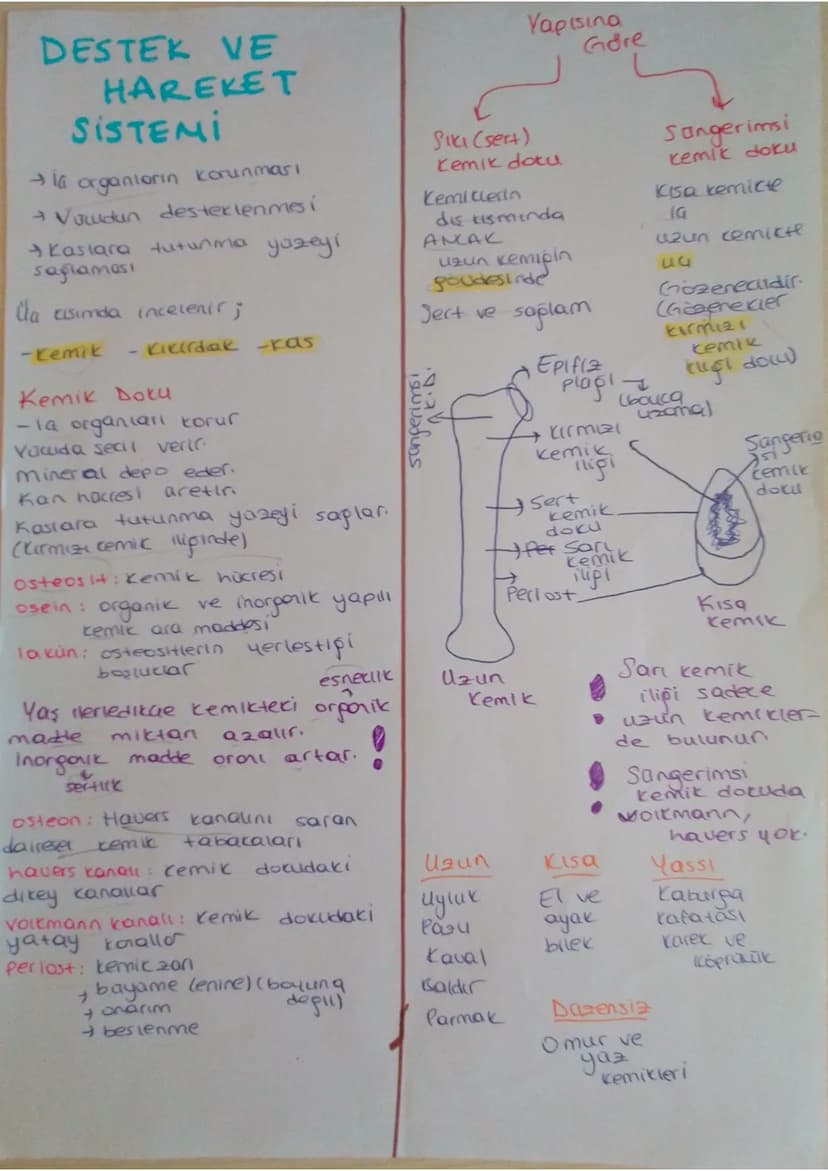 DESTEK VE
HAREKET
SİSTEMİ
→ İç organların korunması
→ Vücudun desteklenmesi
→ Kaslara tutunma yüzeyi
sağlaması
Üç kısımda incelenir;
- Kemik - Kıkırdak - Kas
Kemik Doku
- İç organları korur
Vücuda şekil verir.
Mineral depo eder.
Kan hücresi üretir.
Kaslara tutunma yüzeyi sağlar.
(Kırmızı kemik iliğinde)
osteosit: Kemik hücresi
osein: organik ve inorganik yapılı
kemik ara maddesi
lakün: osteositlerin yerleştiği
boşluklar
esneklik
Yaş ilerledikçe kemikteki organik
madde miktarı azalır.
İnorganik madde oranı artar. !
sertlik
osteon: Havers kanalını saran
dairesel kemik tabakaları
havers kanalı: kemik dokudaki
dikey kanallar
volkmann kanalı: kemik dokudaki
yatay kanallar
periost: kemik zarı
→ büyüme (enine) (boyuna
değil)
→ onarım
→ beslenme
Yapısına
Göre
Sıkı (sert)
kemik doku
Kemiklerin
dış kısmında
ANCAK
uzun kemiğin
gövdesinde
Sert ve sağlam
Süngerimsi
kemik doku
Kısa kemikte
iç
uzun kemikte
uç
Gözeneklidir.
(Gözenekler
kırmızı
kemik
iliği dolu)
Süngerimsi
K.D.
Epifiz
plağı →
(boyca
uzama)
→ kırmızı
kemik
iliği
→ Sert
kemik
doku
→ Per Sarı
kemik
iliği
Periost
Uzun
Kemik
Süngerim
si
kemik
doku
Kısa
kemik
! Sarı kemik
iliği sadece
uzun kemikler-
de bulunur.
! Süngerimsi
kemik dokuda
volkmann,
havers yok.
Uzun
Uyluk
Pazu
Kaval
Baldır
Parmak
Kısa
El ve
ayak
bilek
Yassı
Kaburga
kafatası
kürek ve
köprücük
Düzensiz
Omur ve
yüz
kemikleri